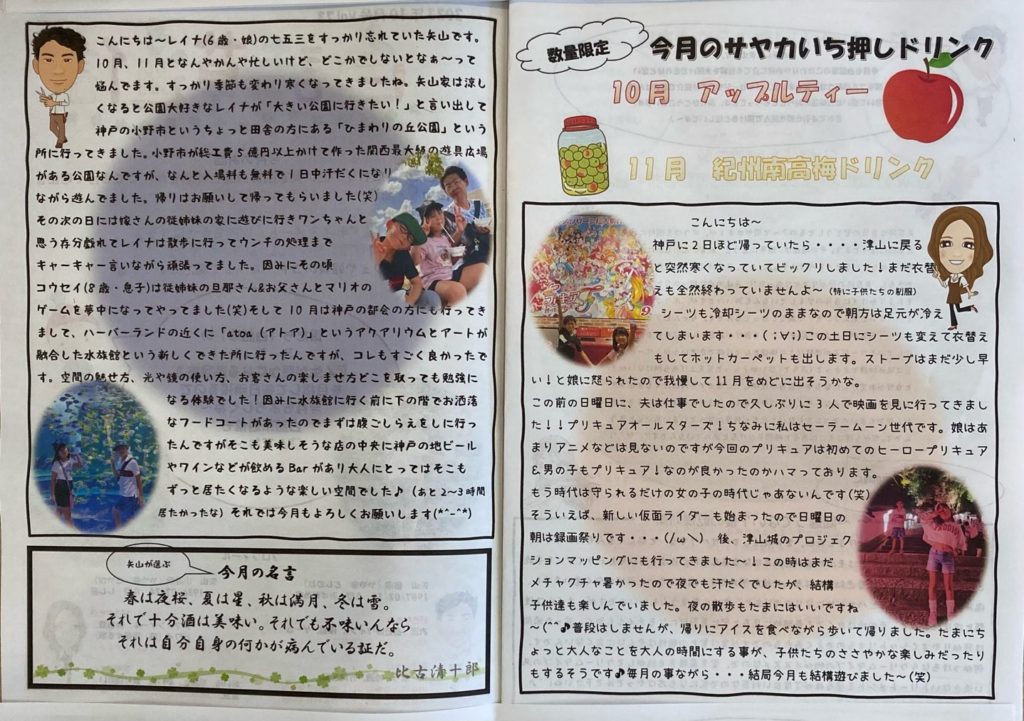 こんにちは～レイナ(6歳・娘)の七五三をすっかり忘れていた矢山です。
10月、11月となんやかんや忙しいけど、どこかでしないとなぁ～って
悩んでます。すっかり季節も変わり寒くなってきましたね。矢山家は涼し
くなると公園大好きなレイナが「大きい公園に行きたい!」と言い出して
神戸の小野市というちょっと田舎の方にある「ひまわりの丘公園」という
所に行ってきました。小野市が総工費5億円以上かけて作った関西最大級の遊具広場
がある公園なんですが、なんと入場料も無料で1日中汗だくになり
ながら遊んでました。帰りはお願いして帰ってもらいました(笑)
その次の日には嫁さんの従姉妹の家に遊びに行きワンちゃんと
思う存分戯れてレイナは散歩に行ってウンチの処理まで
キャーキャー言いながら頑張ってました。因みにその頃
コウセイ(8歳・息子)は従姉妹の旦那さん&お父さんとマリオの
ゲームを夢中になってやってました(笑)そして10月は神戸の都会の方にも行ってき
まして、ハーバーランドの近くに「atoa（アトア）」というアクアリウムとアートが
融合した水族館という新しくできた所に行ったんですが、コレもすごく良かったで
す。空間の魅せ方、光や鏡の使い方、お客さんの楽しませ方どこを取っても勉強に
なる体験でした!因みに水族館に行く前に下の階でお洒落
なフードコートがあったのでまずは腹ごしらえをしに行っ
たんですがそこも美味しそうな店の中央に神戸の地ビール
やワインなどが飲めるBarがあり大人にとってはそこも
ずっと居たくなるような楽しい空間でした♪（あと2～3時間
居たかったな）それでは今月もよろしくお願いします(*^-^*)
矢山が選ぶ
今月の名言
春は夜桜、夏は星、秋は満月、冬は雪。
それで十分酒は美味い。それでも不味いんなら
それは自分自身の何かが病んでいる証だ。
比古清十郎
数量限定
今月のサヤカいち押しドリンク
10月　アップルティー
11月　紀州南高梅ドリンク
こんにちは～
神戸に2日ほど帰っていたら・・・・津山に戻る
と突然寒くなっていてビックリしました↓まだ衣替
えも全然終わっていませんよ～（特に子供たちの制服）
シーツも冷却シーツのままなので朝方は足元が冷え
てしまいます・・・(；∀；)この土日にシーツも変えて衣替え
もしてホットカーペットも出します。ストーブはまだ少し早
い↓と娘に怒られたので我慢して11月をめどに出そうかな。
この前の日曜日に、夫は仕事でしたので久しぶりに3人で映画を見に行ってきま
した！！プリキュアオールスターズ！ちなみに私はセーラームーン世代です。娘はあ
まりアニメなどは見ないのですが今回のプリキュアは初めてのヒーロープリキュア
&男の子もプリキュア！なのが良かったのかハマっております。
もう時代は守られるだけの女の子の時代じゃあないんです(笑)
そういえば、新しい仮面ライダーも始まったので日曜日の
朝は録画祭りです・・・(/ω＼)　後、津山城のプロジェク
ションマッピングにも行ってきました～！この時はまだ
メチャクチャ暑かったので夜でも汗だくでしたが、結構
子供達も楽しんでいました。夜の散歩もたまにはいいですね
～(^^♪普段はしませんが、帰りにアイスを食べながら歩いて帰りました。たまにち
ょっと大人なことを大人の時間にする事が、子供たちのささやかな楽しみだったり
もするそうです♪毎月の事ながら・・・結局今月も結構遊びました～(笑)